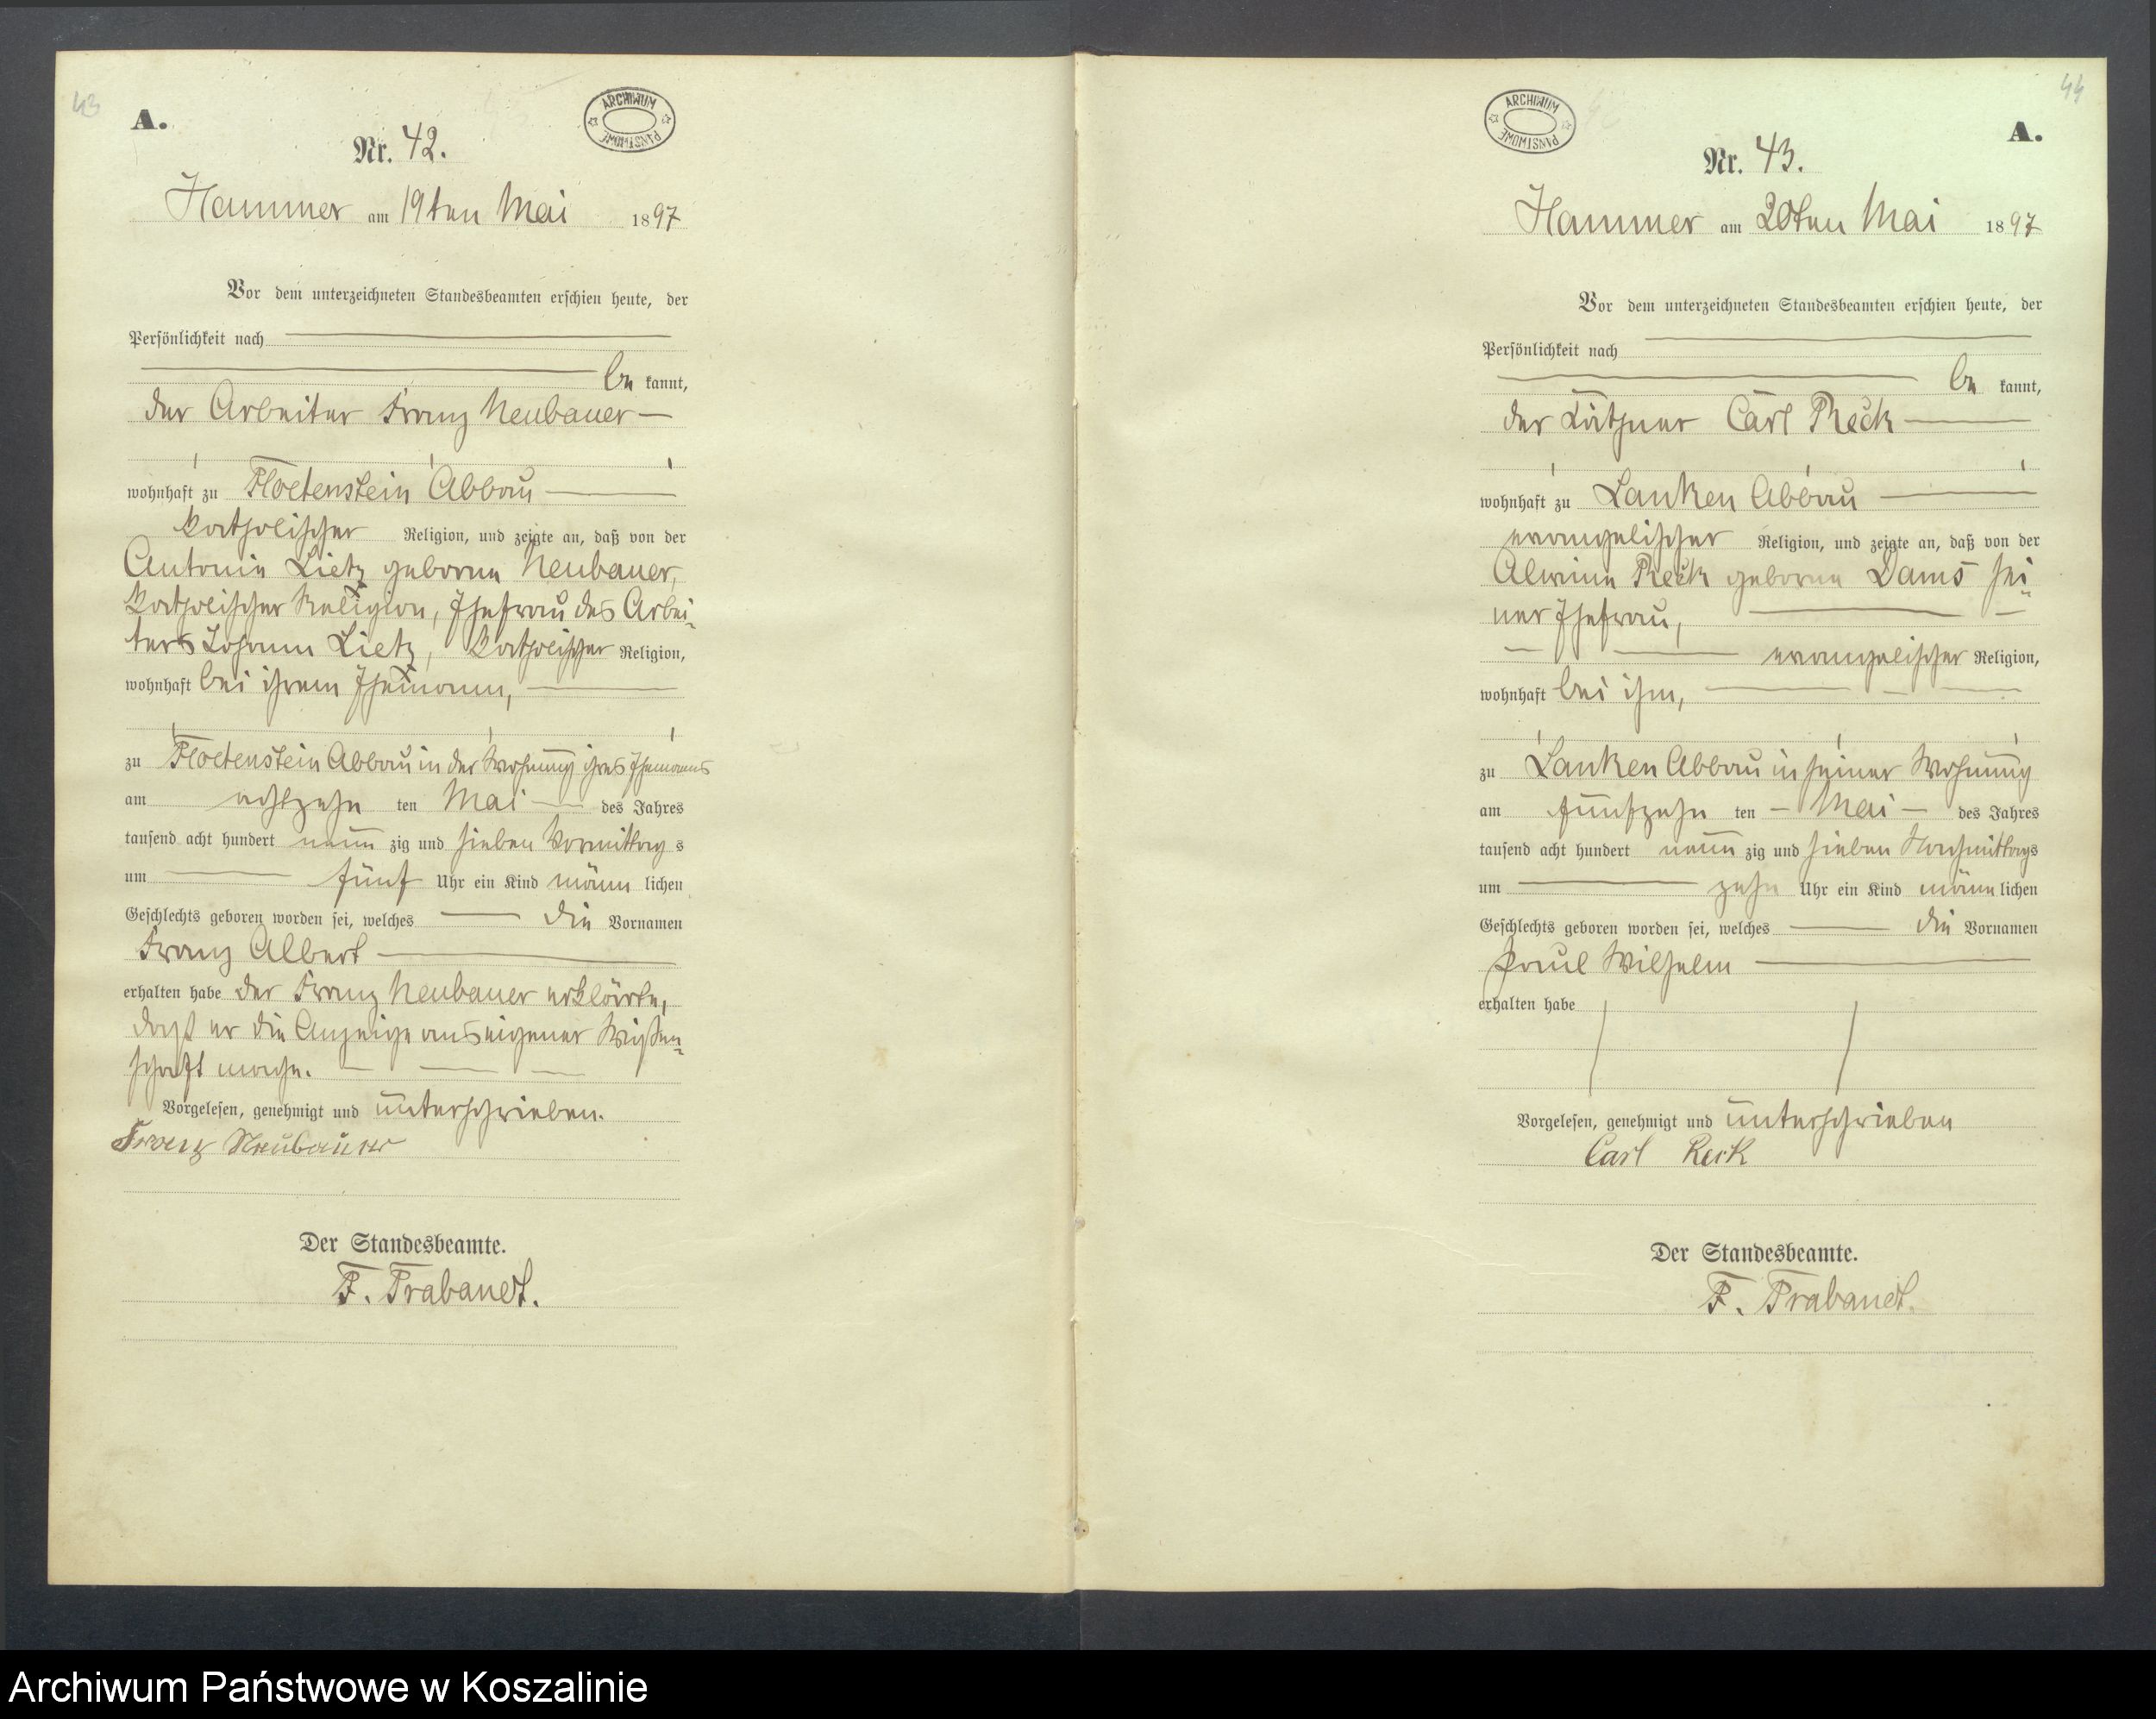 43
A.
ARCHIWUM PAŃSTWOWE
Nr. 42.
Hammer am 19ten Mai 1897
Vor dem unterzeichneten Standesbeamten erschien heute, der
Persönlichkeit nach
be kannt,
der Arbeiter Franz Neubauer
wohnhaft zu Floetenstein Abbau
katholischer Religion, und zeigte an, daß von der
Antonie Lietz geborne Neubauer,
katholischer Religion, Ehefrau des Arbei-
ters Johann Lietz, katholischer Religion,
wohnhaft bei ihrem Ehemann,
zu Floetenstein Abbau in der Wohnung ihres Ehemanns
am achtzehn ten Mai des Jahres
tausend acht hundert neun zig und sieben Vormittag s
um fünf Uhr ein Kind männ lichen
Geschlechts geboren worden sei, welches die Vornamen
Franz Albert
erhalten habe der Franz Neubauer erklärte,
daß er die Anzeige aus eigener Wißen-
schaft mache.
Vorgelesen, genehmigt und unterschrieben.
Franz Neubauer
Der Standesbeamte.
F. Trabandt.
44
ARCHIWUM PAŃSTWOWE
A.
Nr. 43.
Hammer am 20ten Mai 1897
Vor dem unterzeichneten Standesbeamten erschien heute, der
Persönlichkeit nach
be kannt,
der Käthner Carl Reck
wohnhaft zu Lanken Abbau
evangelischer Religion, und zeigte an, daß von der
Alwine Reck geborne Dams sei-
ner Ehefrau,
evangelischer Religion,
wohnhaft bei ihm,
zu Lanken Abbau in seiner Wohnung
am fünfzehn ten Mai des Jahres
tausend acht hundert neun zig und sieben Nachmittags
um zehn Uhr ein Kind männ lichen
Geschlechts geboren worden sei, welches die Vornamen
Paul Wilhelm
erhalten habe
Vorgelesen, genehmigt und unterschrieben
Carl Reck
Der Standesbeamte.
F. Trabandt.
Archiwum Państwowe w Koszalinie